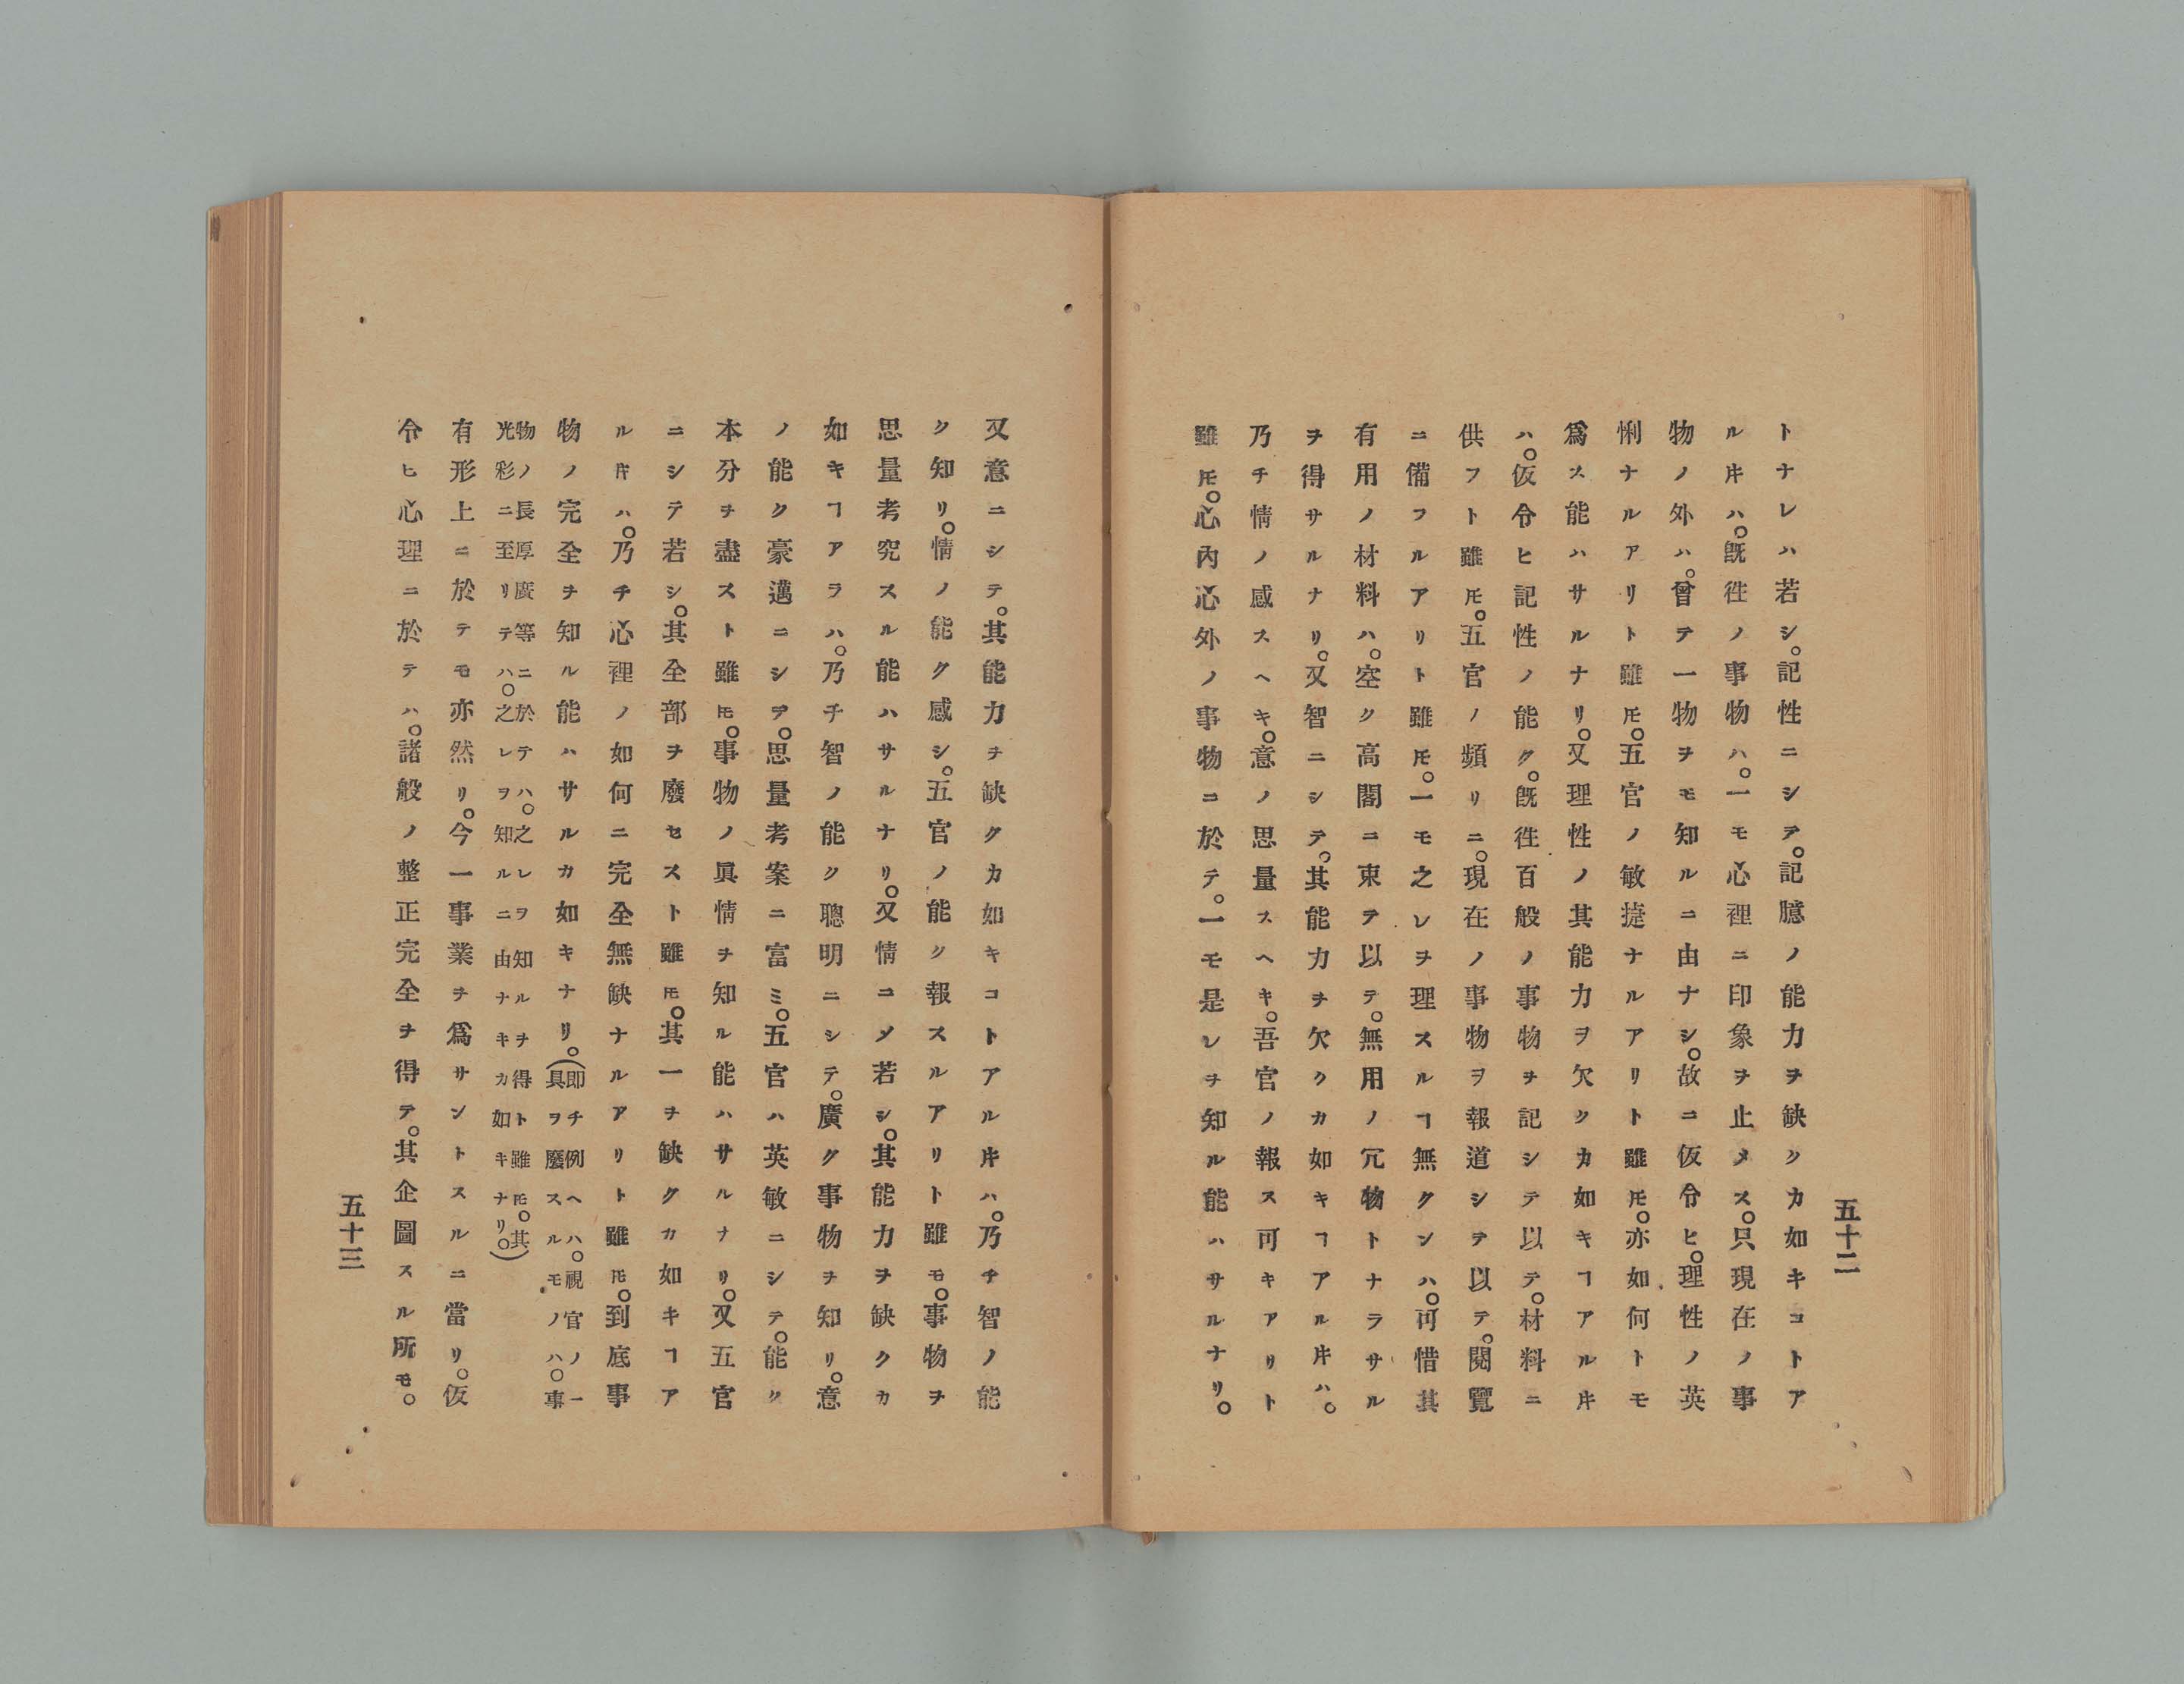 五十二
トナレハ若シ。記性ニシテ。記臆ノ能力ヲ缺クカ如キコトア
ルㇻキハ。既徃ノ事物ハ。一モ心裡ニ印象ヲ止メス。只現在ノ事
物ノ外ハ。曾テ一物ヲモ知ルニ由ナシ。故ニ仮令ヒ。理性ノ英
悧ナルアリト雖𪜈。五官ノ敏捷ナルアリト雖𪜈。亦如何トモ
爲ス能ハサルナリ。又理性ノ其能力ヲ欠クカ如キヿアル𪜀
ハ。仮令ヒ記性ノ能ク。既徃百般ノ事物ヲ記シテ以テ。材料ニ
供フト雖𪜈。五官ノ頻リニ。現在ノ事物ヲ報道シテ以テ。閲覽
ニ備フルアリト雖𪜈。一モ之レヲ理スルヿ無クンハ。可惜其
有用ノ材料ハ。空ク高閣ニ束テ以テ。無用ノ冗物トナラサル
ヲ得サルナリ。又智ニシテ。其能力ヲ欠クカ如キヿアル𪜀ハ。
乃チ情ノ感スヘキ。意ノ思量スヘキ。吾官ノ報ス可キアリト
雖𪜈。心內心外ノ事物ニ於テ。一モ是レヲ知ル能ハサルナリ。
又意ニシテ。其能力ヲ缺クカ如キコトアル𪜀ハ。乃チ智ノ能
ク知リ。情ノ能ク感シ。五官ノ能ク報スルアリト雖モ。事物ヲ
思量考究スル能ハサルナリ。又情ニメ若シ。其能力ヲ缺クカ
如キヿアラハ。乃チ智ノ能ク聰明ニシテ。廣ク事物ヲ知リ。意
ノ能ク豪邁ニシテ。思量考案ニ富ミ。五官ハ英敏ニシテ。能ク
本分ヲ盡スト雖𪜈。事物ノ眞情ヲ知ル能ハサルナリ。又五官
ニシテ若シ。其全部ヲ廢セスト雖𪜈。其一ヲ缺クカ如キヿア
ル𪜀ハ。乃チ心裡ノ如何ニ完全無缺ナルアリト雖𪜈。到底事
物ノ完全ヲ知ル能ハサルカ如キナリ。(即チ例ヘハ。視官ノ一
具ヲ廢スルモノハ。事
物ノ長厚廣等ニ於テハ。之レヲ知ルヲ得ト雖𪜈。其
光彩ニ至リテハ。之レヲ知ルニ由ナキカ如キナリ。)
有形上ニ於テモ亦然リ。今一事業ヲ爲サントスルニ當リ。仮
令ヒ心理ニ於テハ。諸般ノ整正完全ヲ得テ。其企圖スル所モ。
五十三